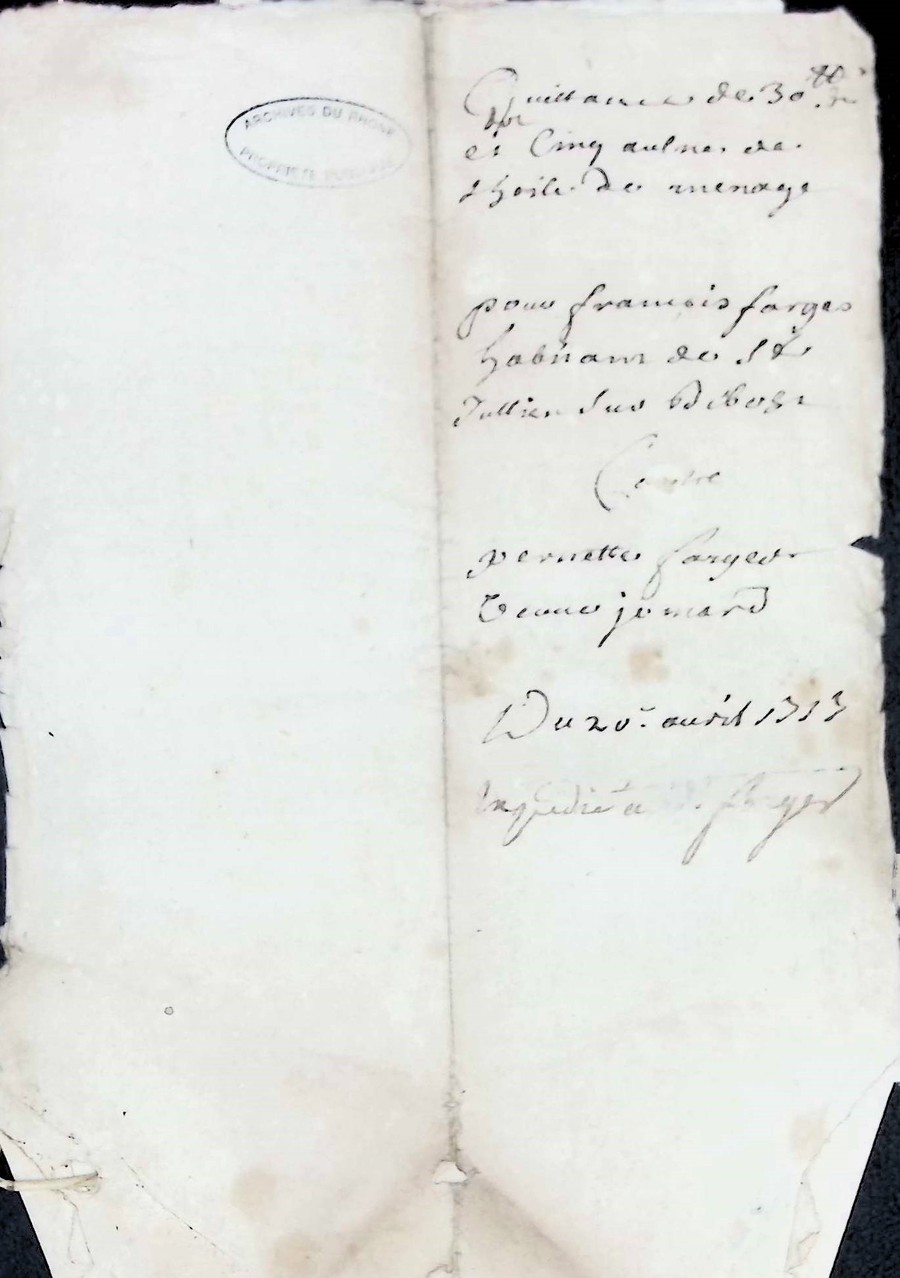 ARCHIVES DU RHONE
PROPRIETE PUBLIQUE
Quittance de 30 tt
et Cinq aulnes de
thoile de menage
pour francois farges
habitant de St
Jullien sur Bibost
Contre
pernette farges
veuve jomard
Du 20e avril 1713
Expedié a farges